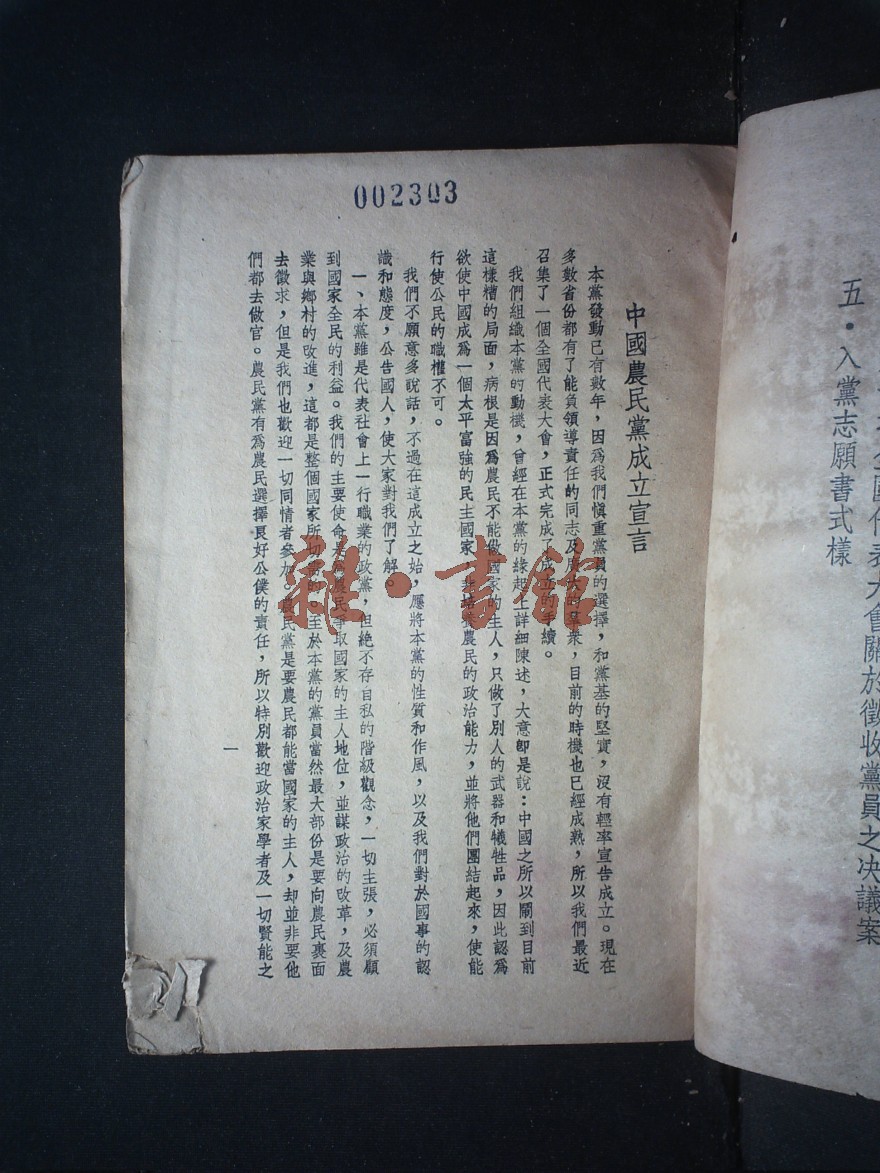 002303
五・入黨志願書式樣
全國代表大會關於徵收黨員之决議案
中國農民黨成立宣言
本黨發動已有數年，因爲我們愼重黨員的選擇，和黨基的堅實，沒有輕率宣告成立。現在
多數省份都有了能負領導責任的同志及廣大的羣衆，目前的時機也已經成熟，所以我們最近
召集了一個全國代表大會，正式完成了成立的手續。
我們組織本黨的動機，曾經在本黨的緣起上詳細陳述，大意卽是說：中國之所以鬧到目前
這樣糟的局面，病根是因爲農民不能做國家的主人，只做了別人的武器和犧牲品，因此認爲
欲使中國成爲一個太平富強的民主國家，非培養農民的政治能力，並將他們團結起來，使能
行使公民的職權不可。
我們不願意多說話，不過在這成立之始，應將本黨的性質和作風，以及我們對於國事的認
識和態度，公告國人，使大家對我們了解。
一、本黨雖是代表社會上一行職業的政黨，但絕不存自私的階級觀念，一切主張，必須顧
到國家全民的利益。我們的主要使命是爲農民爭取國家的主人地位，並謀政治的改革，及農
業與鄉村的改進，這都是整個國家所切需的。至於本黨的黨員當然最大部份是要向農民裏面
去徵求，但是我們也歡迎一切同情者參加。農民黨是要農民都能當國家的主人，却並非要他
們都去做官。農民黨有爲農民選擇良好公僕的責任，所以特別歡迎政治家學者及一切賢能之
一
雜・書館